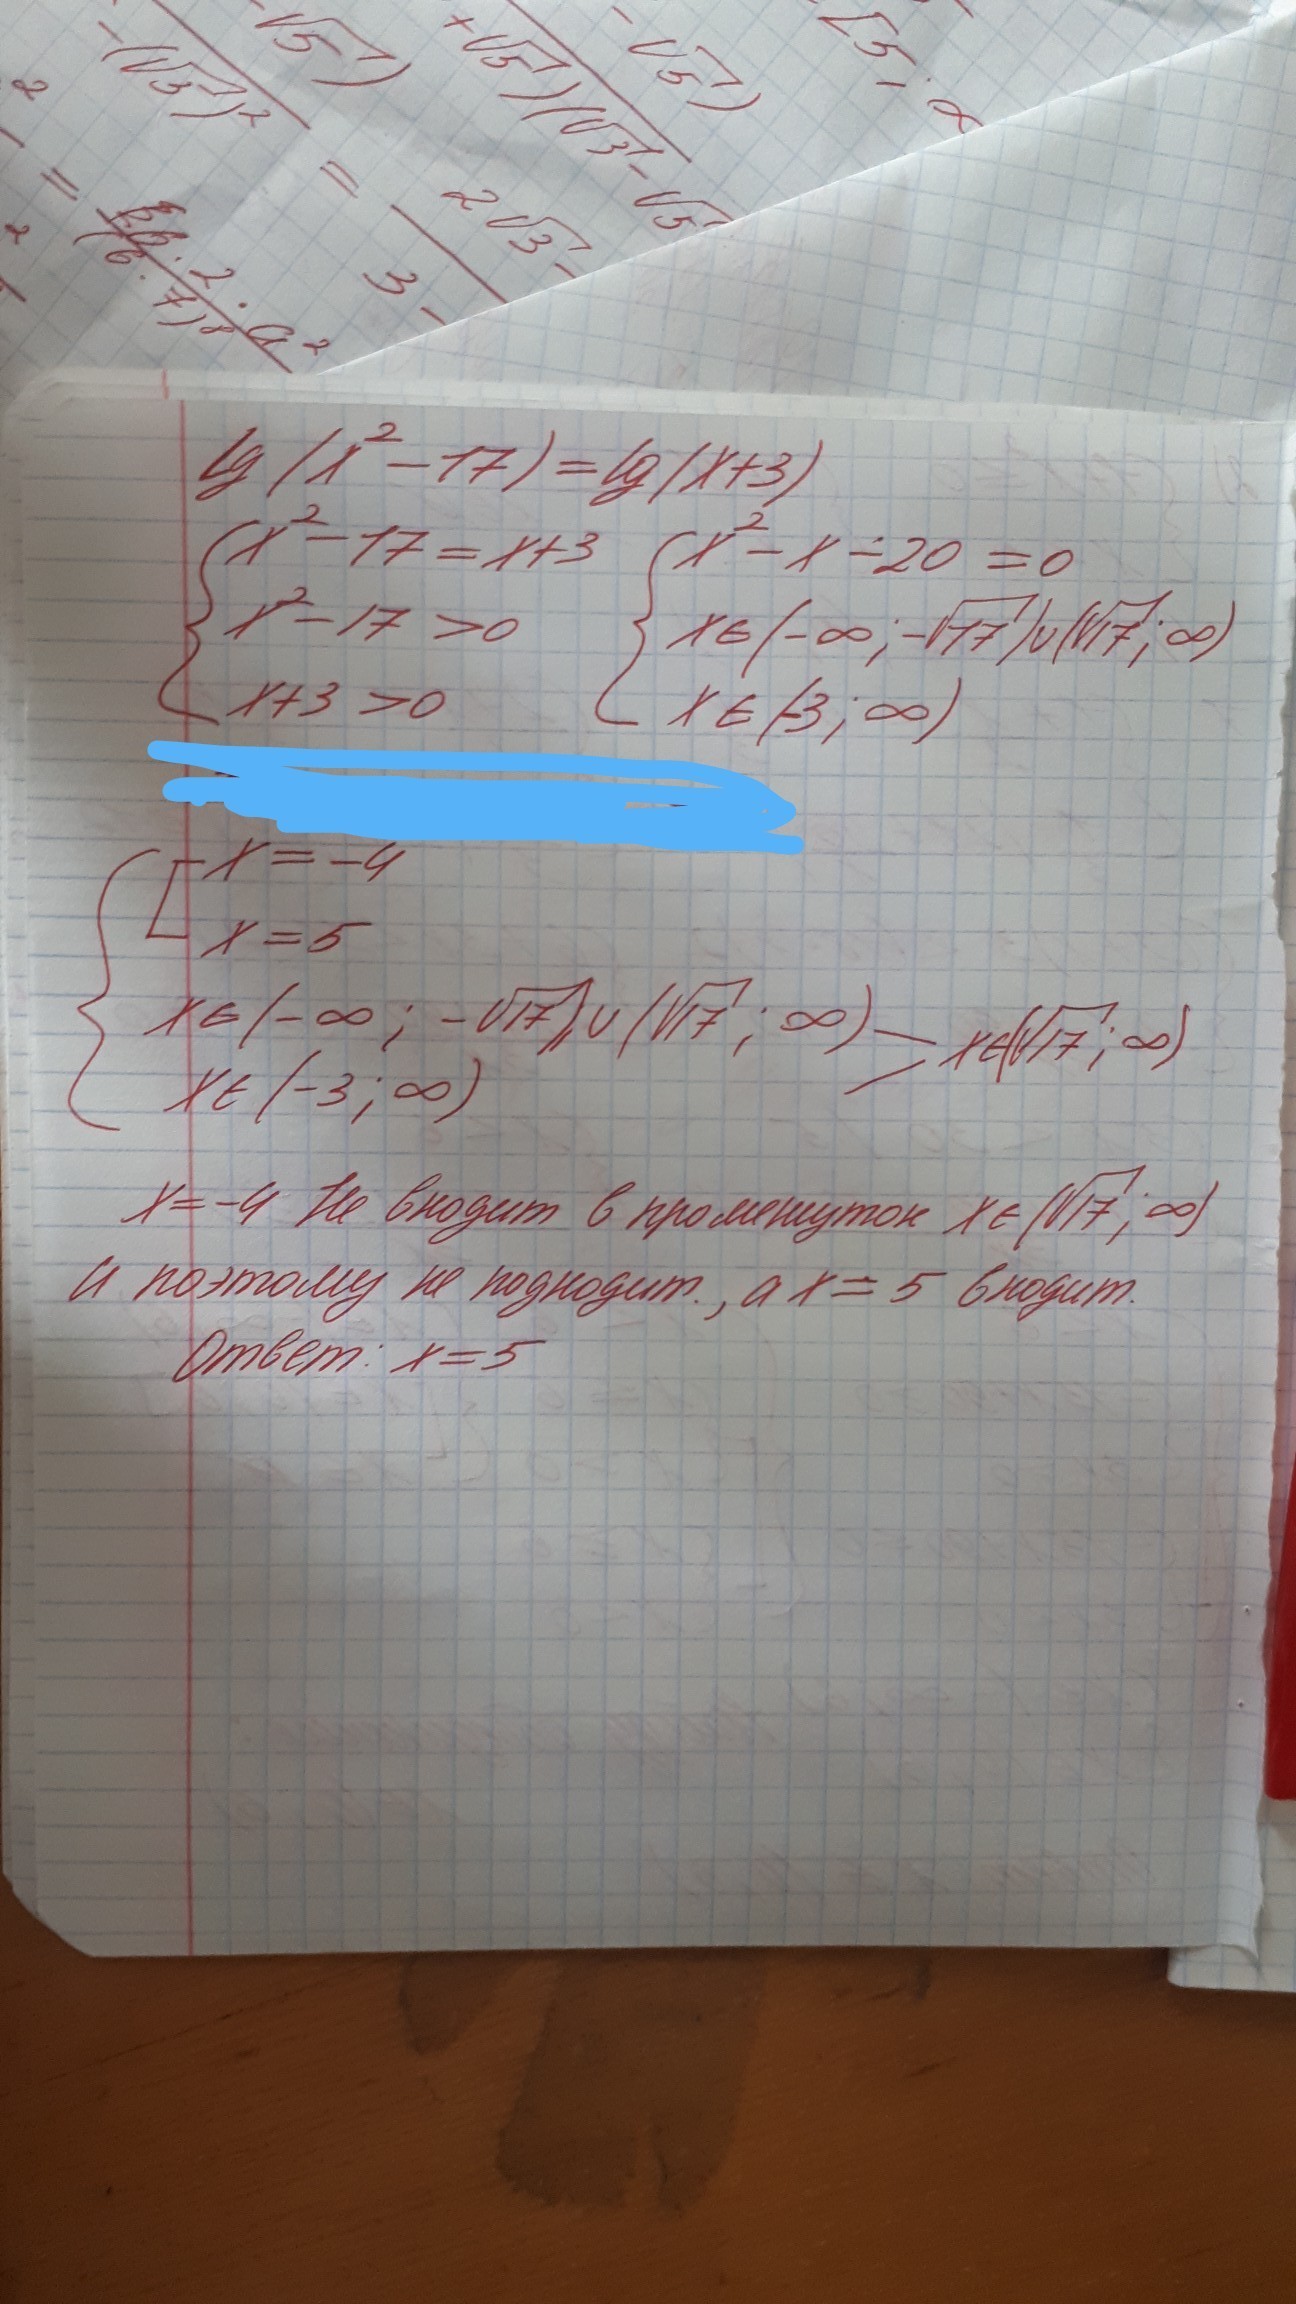 -√5)
-(√5)²
=
2√3-
3-
+√5)(√3-√5
-√5)
[5; ∞
lg(x²-17)=lg(x+3)
x²-17=x+3
x²-17>0
x+3>0
x²-x-20=0
x∈(-∞;-√17)∪(√17;∞)
x∈(-3;∞)
x=-4
x=5
x∈(-∞; -√17)∪(√17; ∞)
x∈(-3;∞)
x∈(√17;∞)
x=-4 не входит в промежуток x∈(√17;∞)
и поэтому не подходит., а x=5 входит.
Ответ: x=5